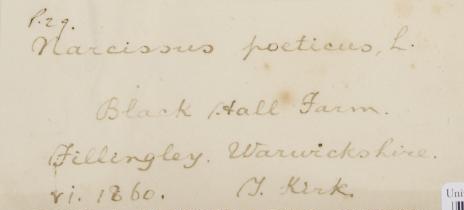 p.29.
Narcissus poeticus, L.
Black Hall Farm.
Fillingley. Warwickshire.
vi. 1860. T. Kirk.
Uni